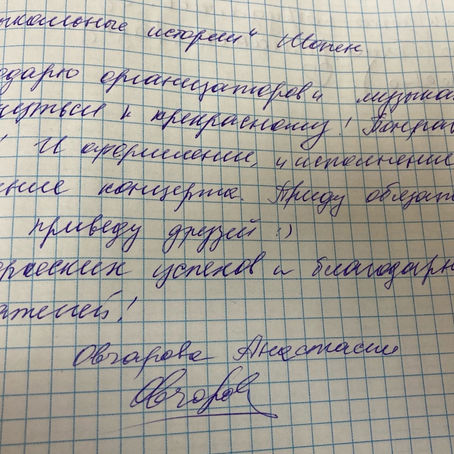 ыкальные истории" Шопен
одарю организаторов и музыка
нуться к прекрасному! Понрав
! И оформление, и исполнение
ение концерта. Приду обязат
приведу друзей :)
рческих успехов и благодарн
ателей!
Овчарова Анастасия
Овчаров